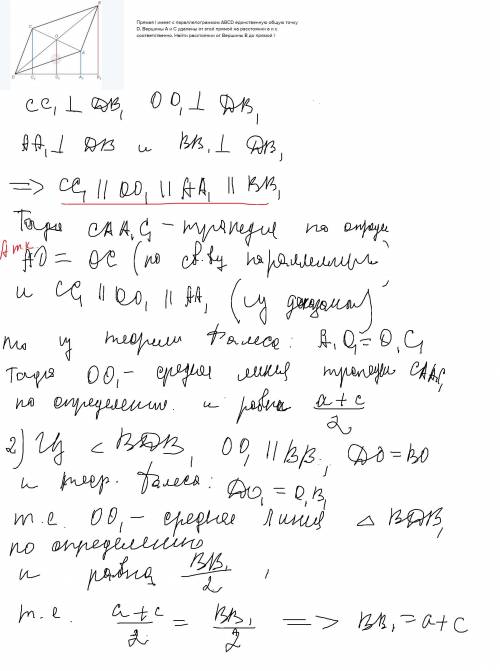 Прямая l имеет с параллелограммом ABCD единственную общую точку
D. Вершины A и C удалены от этой прямой на расстояния a и c
соответственно. Найти расстояния от Вершины B до прямой l
B
C
O
A
D C₁ O₁ A₁ B₁
CC₁ ⊥ DB₁ OO₁ ⊥ DB₁
AA₁ ⊥ DB и BB₁ ⊥ DB₁
=> CC₁ || OO₁ || AA₁ || BB₁
Тогда CAA₁C₁ – трапеция по опред
А т.к
AO = OC (по св.ву параллелогр)
и CC₁ || OO₁ || AA₁ (из доказан)
то из теоремы Фалеса: A₁O₁ = O₁C₁
Тогда OO₁ – средняя линия трапеции CAA₁C₁
по определению. и равна (a+c)/2
2) Из < BDB₁ OO₁ || BB₁, DO = BO
и теор. Фалеса: DO₁ = O₁B₁
т.е. OO₁ – средняя линия △ BDB₁
по определению
и равна BB₁/2
т.е. (a+c)/2 = BB₁/2 => BB₁ = a+c